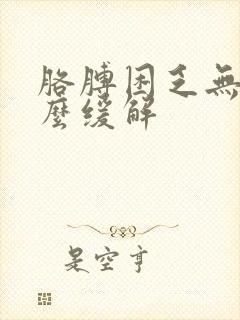 胳膊困乏無
麼缓解
是空亨